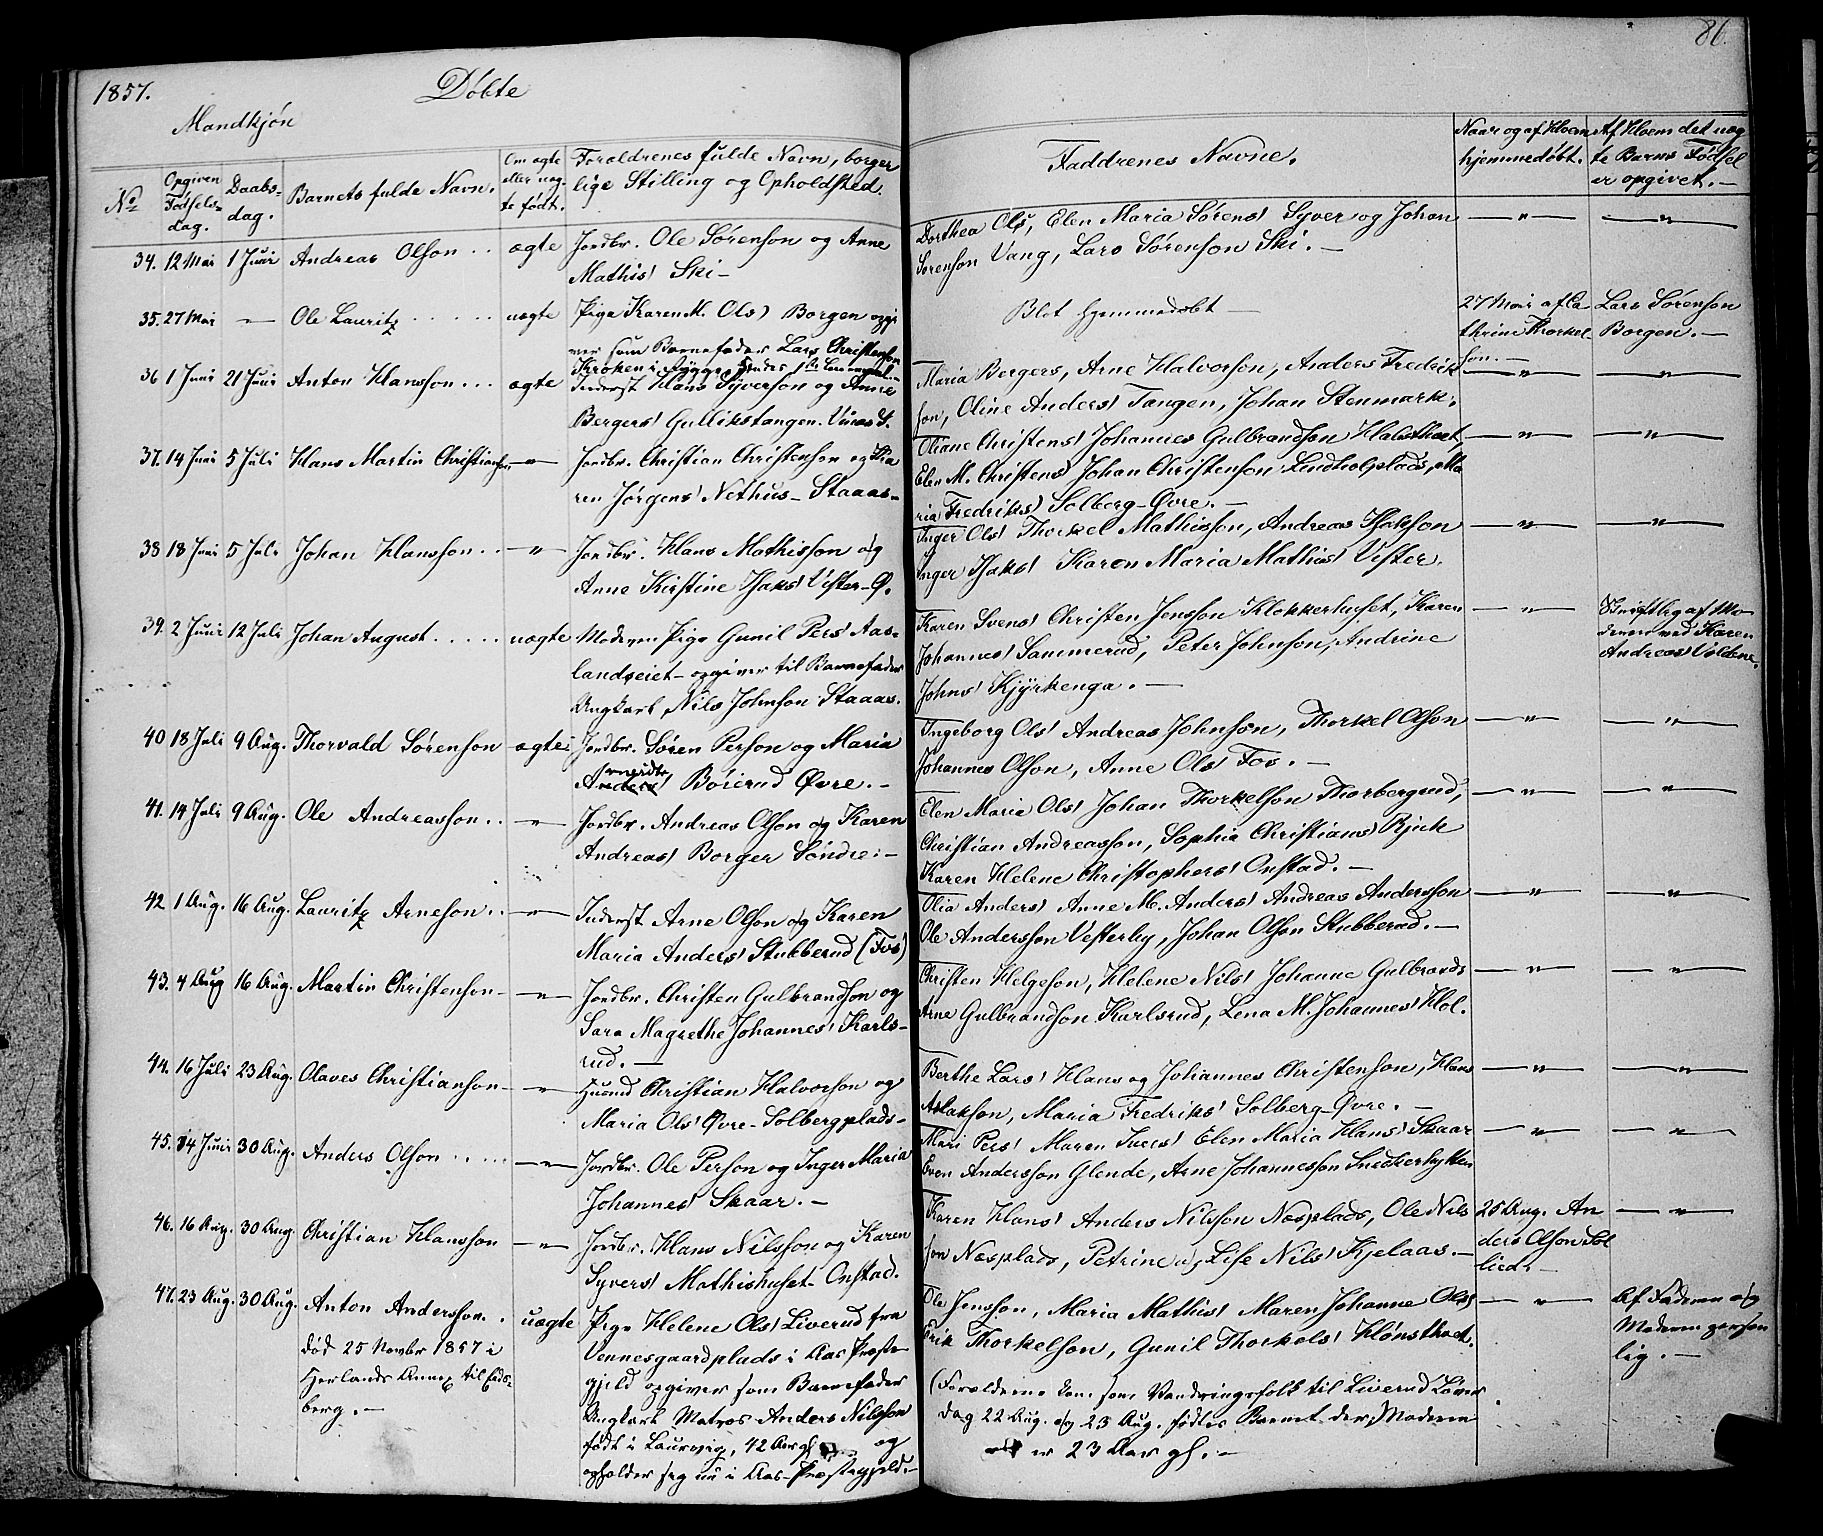 1857.
Døbte
86.
Mandkjön
No
Opgiven Fødsels-dag.
Daabs-dag.
Barnets fulde Navn.
Om ægte eller uægte født.
Forældrenes fulde Navn, borgerlige Stilling og Opholdsted.
Faddrenes Navne.
Naar og af Hvem hjemmedøbt.
Af Hvem det uægte Barns Fødsel er opgivet. —
34. 12 Mai 1 Juni Andreas Olson . . ægte Jordbr. Ole Sørenson og Anne
Mathisd Ski —
Dorthea Olsd, Elen Maria Sørensd Syver og Johan
Sørenson Vang, Lars Sørenson Ski. —
— „ — — „ —
35. 27 Mai — Ole Lauritz . . . . . uægte Pige Karen M. Olsd Borgen opgi
ver som Barnefader Lars Christenson
Kroken i Rygge, Hendes 1ste Leiermaal. —
Blot hjemmedøbt —
27 Mai af Ca
thrine Thorkel
son. —
Lars Sørenson
Borgen. —
36 1 Juni 21 Juni Anton Hansson . . . ægte Inderst Hans Syverson og Anne
Bergersd Gullikstangen.
Maria Bergersd, Arne Halvorson, Anders Fredrik
son, Oline Andersd Tangen, Johan Stenmark.
— „ — — „ —
37. 14 Juni 5 Juli Hans Martin Christianson — „ — Jordbr. Christian Christenson og Ka
ren Jørgensd Nethus - Staaas —
Oliane Christensd Johannes Gulbrandson
Elen M. Christensd Johan Christenson Lindholplads, Ma
ria Fredriksd Solberg - Øvre. —
— „ — — „ —
38 18 Juni 5 Juli Johan Hansson . . — „ — Jordbr. Hans Mathisson og
Anne Kirstine Isaksd Vister - Ø.
Inger Olsd Thorkel Mathisson, Andreas Isakson
Inger Isaksd Karen Maria Mathisd Vister.
— „ — — „ —
39. 2 Juni 12 Juli Johan August . . . . . uægte Moderen Pige Gunil Persd Aas-
landseiet - opgiver til Barnefader
Ungkarl Nils Johnson Staaas.
Karen Svensd Christen Jensson Klokkerhuset, Karen
Johannesd Sammerud, Peter Johnson, Andrine
Johnsd Kjyrkenga. —
— „ —
Skriftlig af Mo
deren ved Karen
Andreasd Voldene.
40 18 Juli 9 Aug. Thorvald Sørenson ægte Jordbr. Søren Person og Maria
Andersd Böierud Øvre. —
Ingeborg Olsd Andreas Johnson, Thorkel Olson
Johannes Olson, Anne Olsd Fos. —
— „ — — „ —
41. 14 Juli 9 Aug. Ole Andreasson . . — „ — Jordbr. Andreas Olson og Karen
Andreasd Borger Søndre. —
Elen Maria Olsd Johan Thorkelson Thorbergsrud,
Christian Andreasson, Sophia Christiansd
Karen Helene Christophersd Onstad. —
— „ — — „ —
42 1 Aug. 16 Aug. Lauritz Arneson . . — „ — Inderst Arne Olson og Karen
Maria Andersd Stubberud (Fos)
Olia Andersd Anne M. Andersd Andreas Andersson
Ole Andersson Vesterby, Johan Olson Stubberud. —
— „ — — „ —
43. 4 Aug 16 Aug. Martin Christenson — „ — Jordbr. Christen Gulbrandson og
Sara Magrethe Johannesd Karls-
rud. —
Christen Helgeson, Helene Nilsd Johanne Gulbrandsd
Arne Gulbrandson Karlsrud, Lena M. Johannesd Hol.
— „ — — „ —
44. 16 Juli 23 Aug. Olaves Christianson — „ — Husmd Christian Halvorson og
Maria Olsd Øvre - Solbergplads —
Berthe Larsd Hans og Johannes Christenson, Hans
Aslakson, Maria Fredriksd Solberg - Øvre. —
— „ — — „ —
45. 14 Juni 30 Aug. Anders Olson . . . . . — „ — Jordbr. Ole Person og Inger Maria
Johannesd Skaar. —
Mari Persd Maren Iversd Elen Maria Hansd Skaar
Even Andersson Glende, Arne Johannesson Snedkerhytten
— „ — — „ —
46. 16 Aug. 30 Aug Christian Hansson — „ — Jordbr. Hans Nilsson og Karen
Syversd Mathishuset - Onstad.
Karen Hansd Anders Nilsson Næsplads, Ole Nils
son Næsplads, Petrine og Lise Nilsd Kjelaas. —
25 Aug. An
ders Olson Sol
lied. —
— „ —
47. 23 Aug. 30 Aug. Anton Andersson. . uægte Pige Helene Olsd Liverud fra
død 25 Novbr 1857 i
Herlands Annex til Eids-
berg. —
Vennesgaardplads i Aas Præste
gjeld opgiver som Barnefader
Ungkarl Matros Anders Nilsson
født i Laurvig, 42 Aar gl. og
opholder sig nu i Aas - Præstegjeld. —
Ole Jensson, Maria Mathisd Maren Johanne Olsd
Erik Thorkelson, Gunil Thorkelsd
(Forældrene kom som Vandringsfolk til Liverud Løver
dag 22 Aug. og 23 Aug. fødtes Barnet der) Moderen
er 23 Aar gl. —
— „ —
Af Faderen og
Moderen person
lig. —